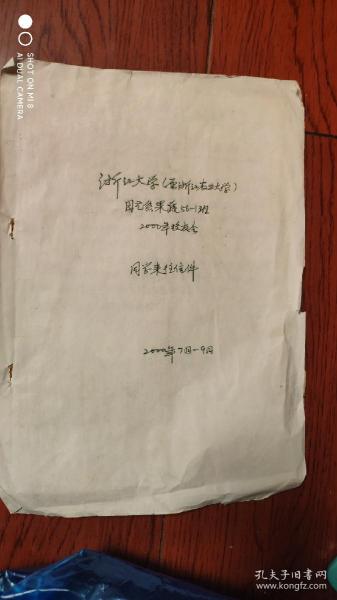 SHOT ON MI 8
AI DUAL CAMERA
浙江大学(原浙江农业大学)
园艺系果蔬56-1班
2000年校友会
同学来往信件
2000年7月-9月
孔夫子旧书网
www.kongfz.com